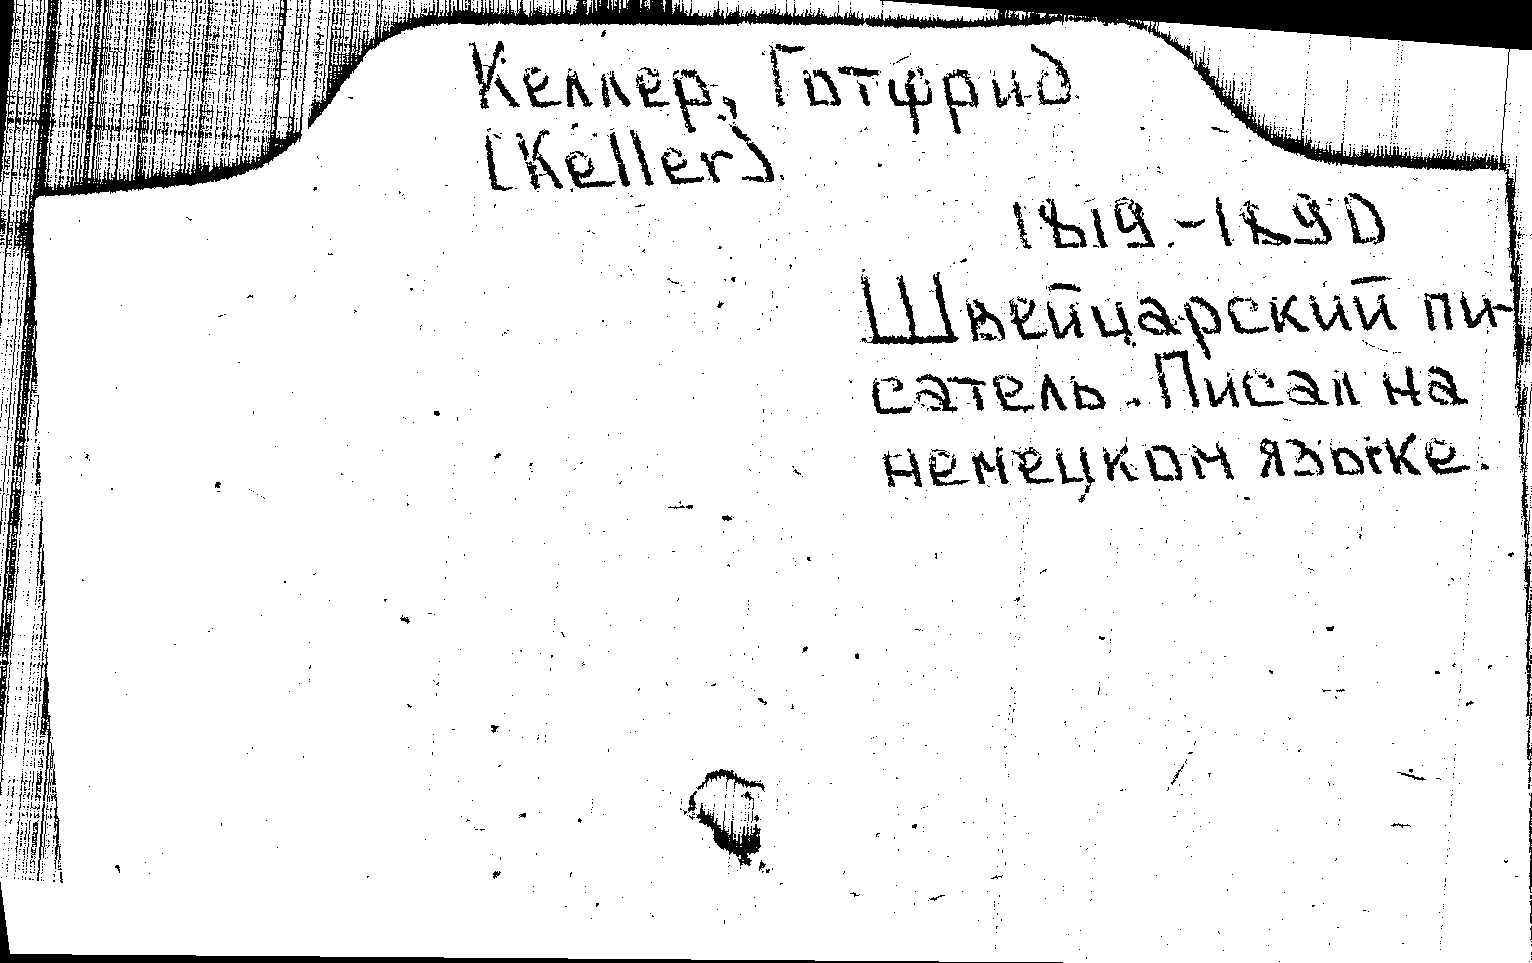 Келлер, Готфрид
[Keller]
1819-1890
Швейцарский пи-
сатель. Писал на
немецком языке.